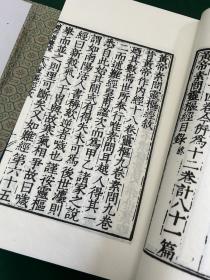 今併爲十二卷計八十一篇
黃帝素問靈樞經目錄終
黃帝素問靈樞經敘
昔黃帝作內經十八卷靈樞九卷素問九卷
迺其數焉世所奉行唯素問耳越人得其一
二而述難經皇甫謐次而爲甲乙諸家之說
悉自此始其間或有得失未可爲後世法則
謂如南陽活人書稱欬逆者噦也謹按靈樞
經曰新穀氣入於胃與故寒氣相爭故曰噦
舉而並之則理可斷矣又如難經第六十五